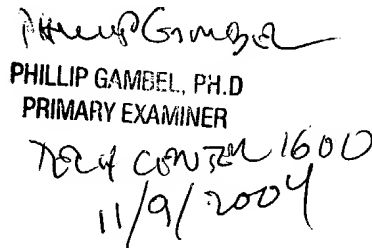 Phillip Gambel
PHILLIP GAMBEL, PH.D
PRIMARY EXAMINER
TECH CENTER 1600
11/9/2004